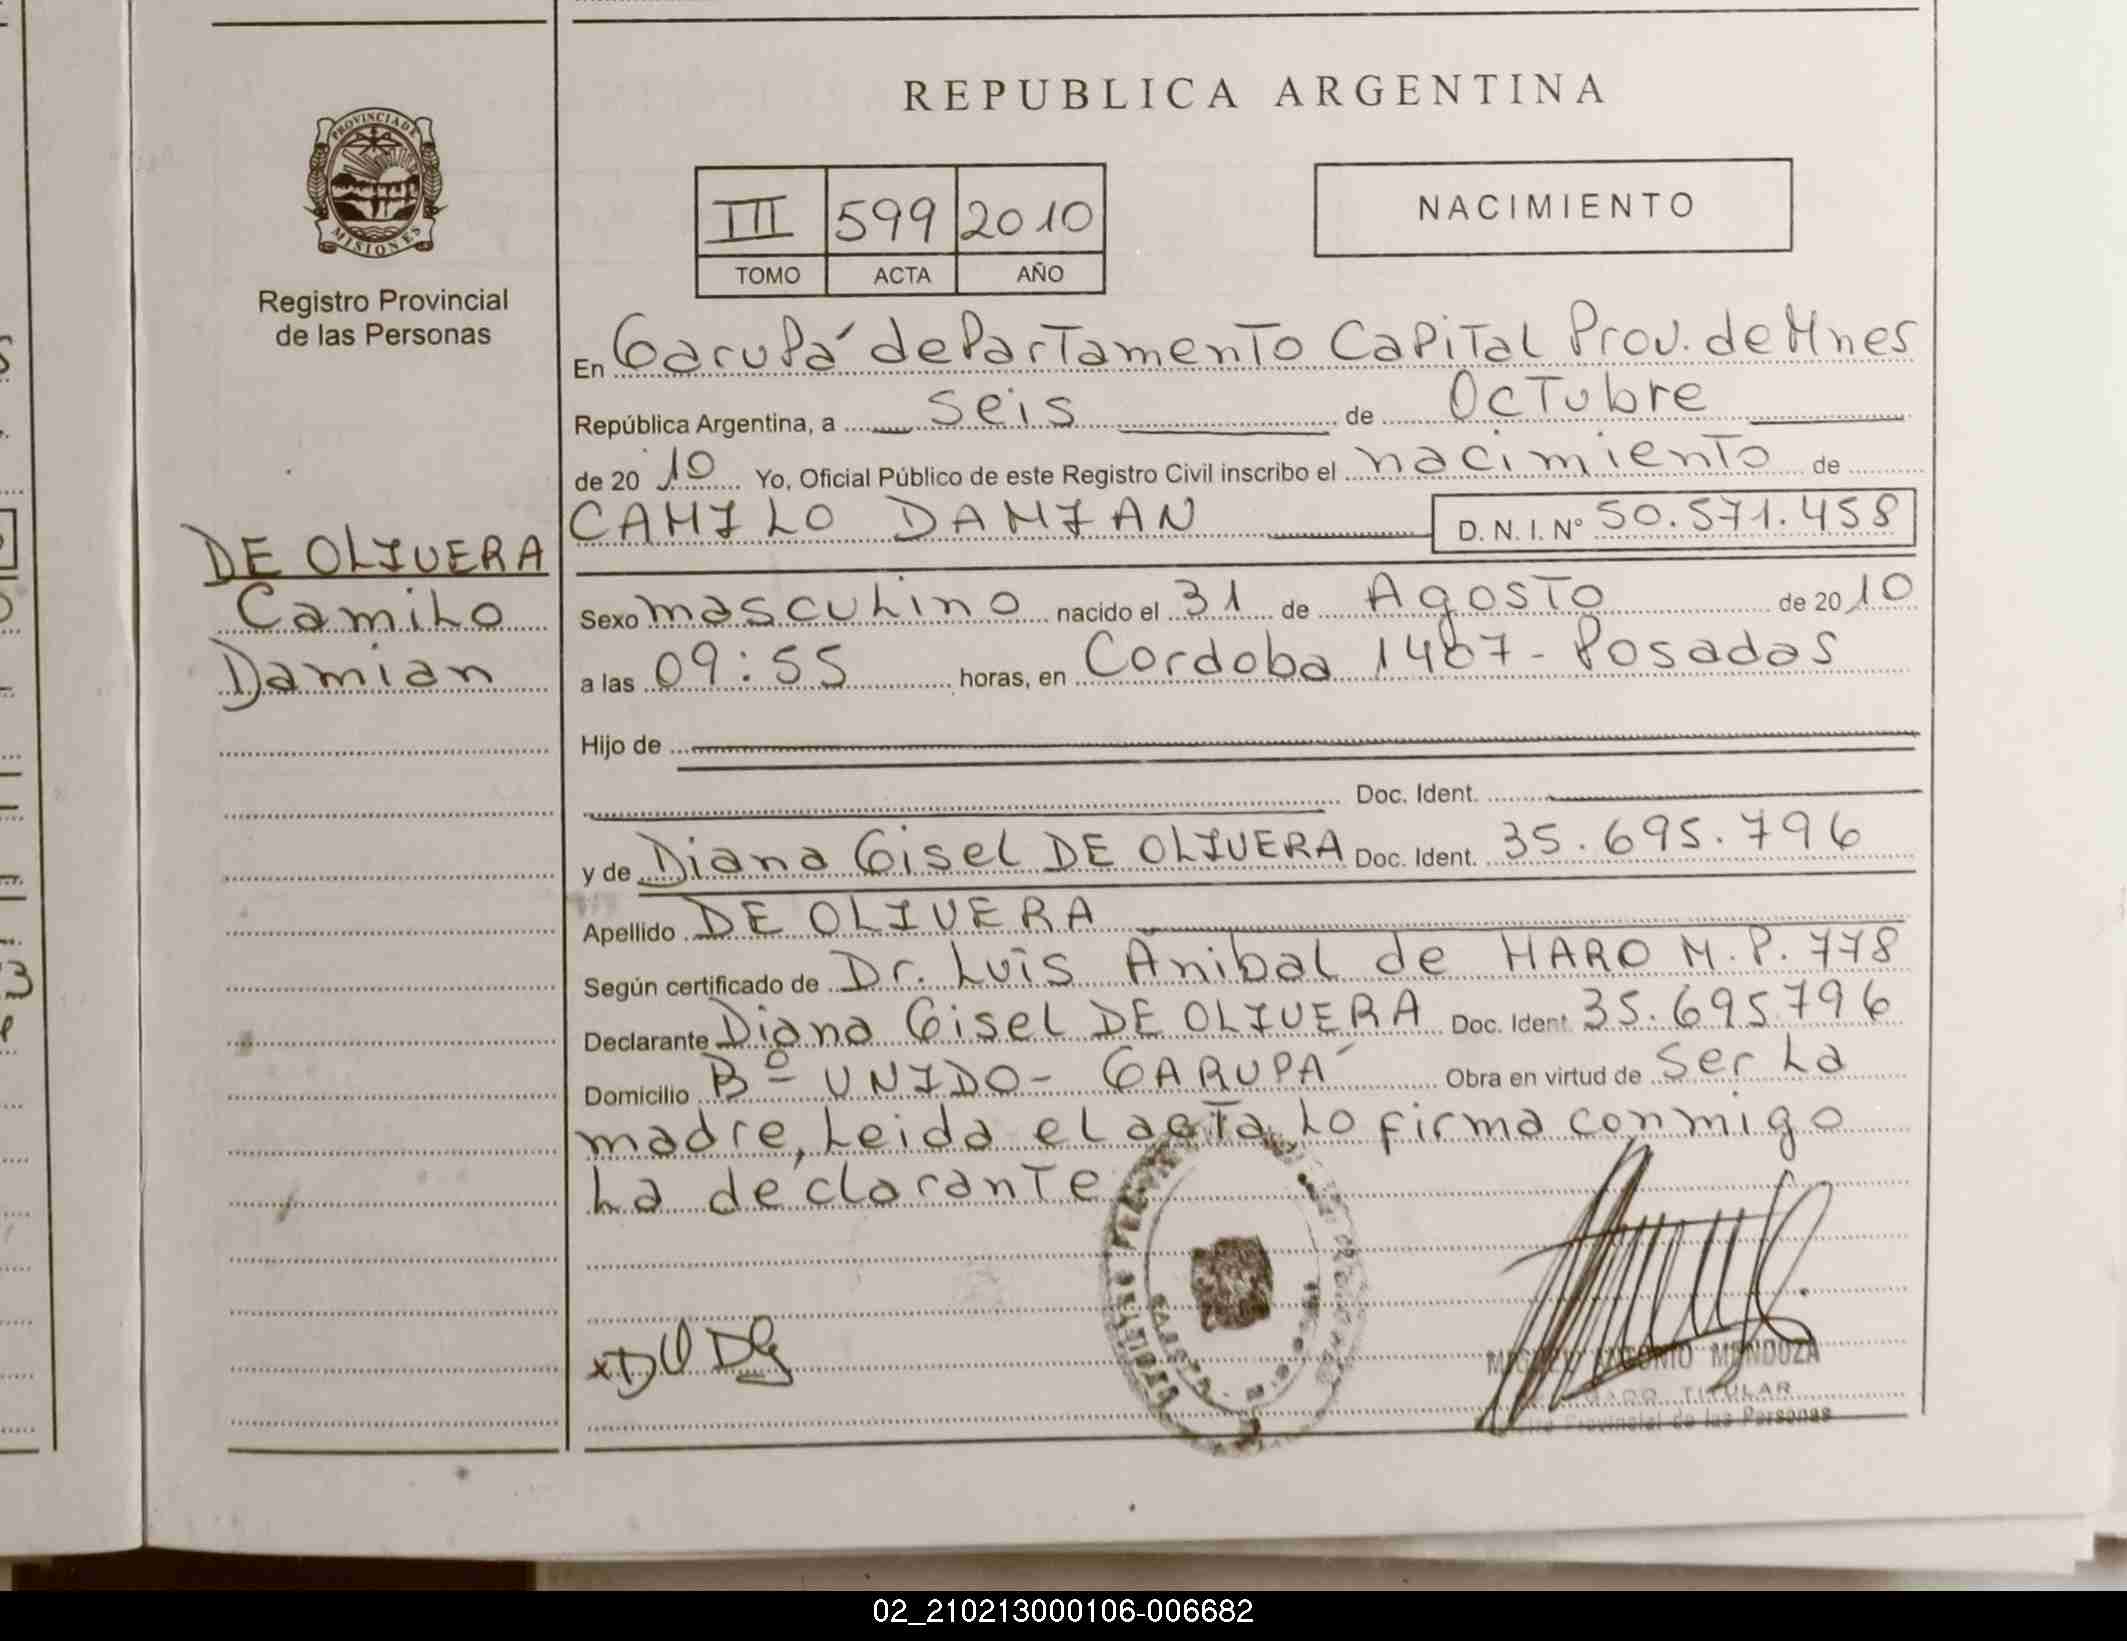 REPUBLICA ARGENTINA
PROVINCIA DE
MISIONES
Registro Provincial
de las Personas
III 599 2010
TOMO ACTA AÑO
NACIMIENTO
En Garupá departamento Capital Prov. de Mnes
República Argentina, a seis de Octubre
de 2010 Yo, Oficial Público de este Registro Civil inscribo el nacimiento de
CAMILO DAMIAN D.N.I. Nº 50.571.458
DE OLIVERA
Camilo
Damian
Sexo masculino nacido el 31 de Agosto de 2010
a las 09:55 horas, en Cordoba 1407 - Posadas
Hijo de
Doc. Ident.
y de Diana Gisel DE OLIVERA Doc. Ident. 35.695.796
Apellido DE OLIVERA
Según certificado de Dr. Luis Anibal de HARO M.P. 778
Declarante Diana Gisel DE OLIVERA Doc. Ident. 35.695796
Domicilio Bº UNIDO - GARUPÁ Obra en virtud de ser la
madre, Leida el acta, Lo firma conmigo
La declarante
MENDOZA
TITULAR
Provincial de las Personas
02_210213000106-006682